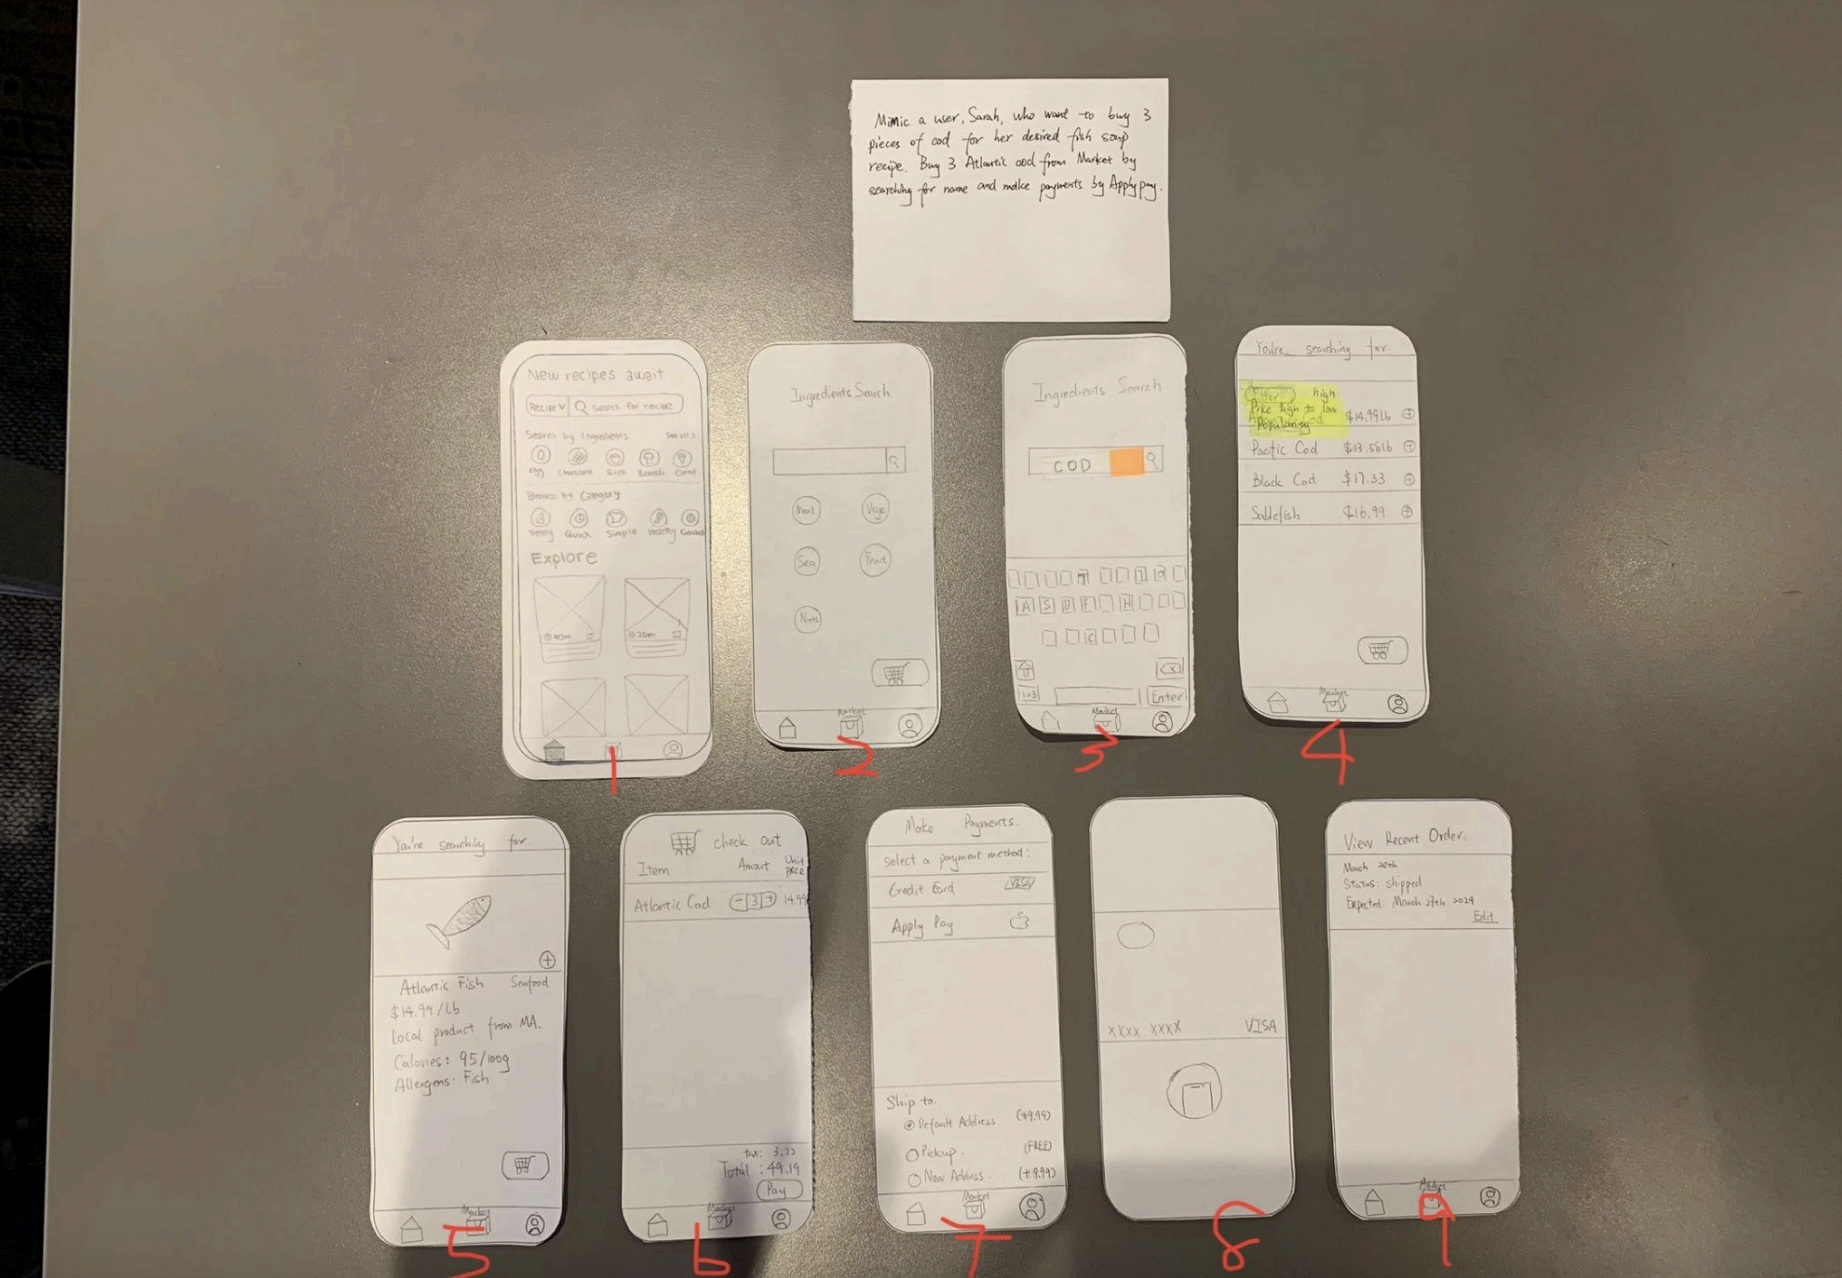 Mimic a user, Sarah, who want to buy 3
pieces of cod for her desired fish soup
recipe. Buy 3 Atlantic cod from Market by
searching for name and make payments by Applypay.
New recipes await
Recipe V Search for recipe
Search by Ingredients See all >
Egg Chocolate Rice Carrot
Browse by Category
Trendy Quick Simple Healthy
Explore
40m 20m
1
Ingredients Search
Meat Vege
Sea Fruit
Nuts
Market
2
Ingredients Search
COD
A S D F H
C
123 Enter
Market
3
You're searching for
Filter high
Price high to low $14.99lb
Popularity
Pacific Cod $13.58lb
Black Cod $17.33
Sablefish $16.99
Market
4
You're searching for.
Atlantic Fish Seafood
$14.99/Lb
Local product from MA.
Calories: 95/100g
Allergens: Fish
Market
5
check out
Item Amount Unit price
Atlantic Cod - 3 + 14.99
tax:
Total: 49.19
Pay
Market
6
Make Payments.
Select a payment method:
Credit Card VISA
Apply Pay
Ship to.
Default Address (+9.99)
Pickup. (FREE)
New Address. (+9.99)
Market
7
XXXX XXXX VISA
8
View Recent Order.
March 20th
Status: shipped
Expected: March 27th. 2024
Edit
Market
9